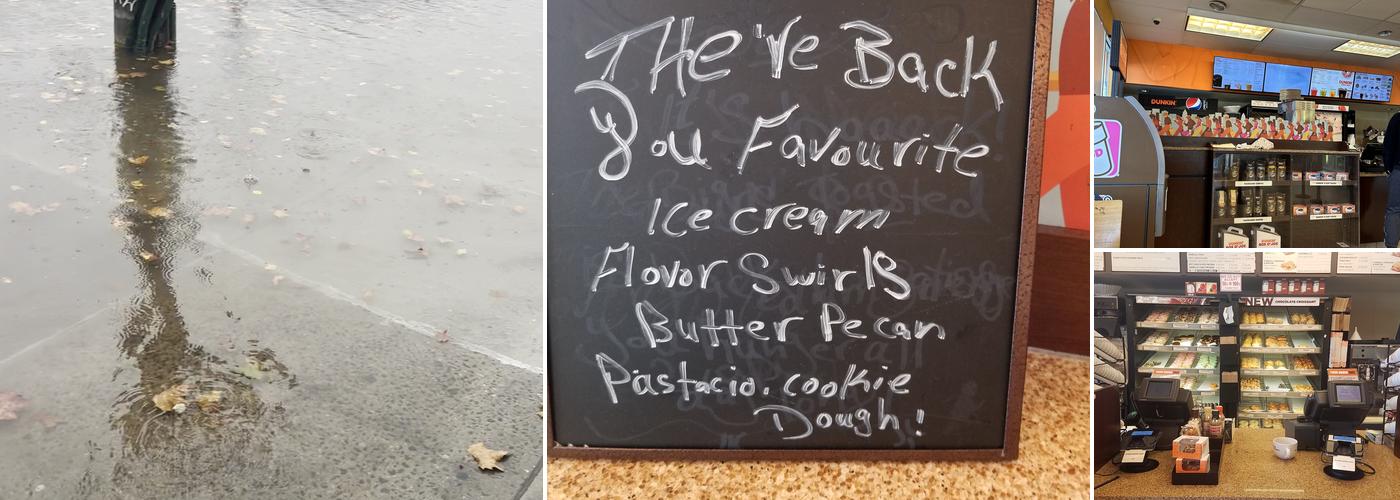 THe've Back
You Favourite
Ice cream
Flovor Swirls
Butter Pecan
Pastacio. cookie
Dough!
DUNKIN'
NEW CHOCOLATE CROISSANT